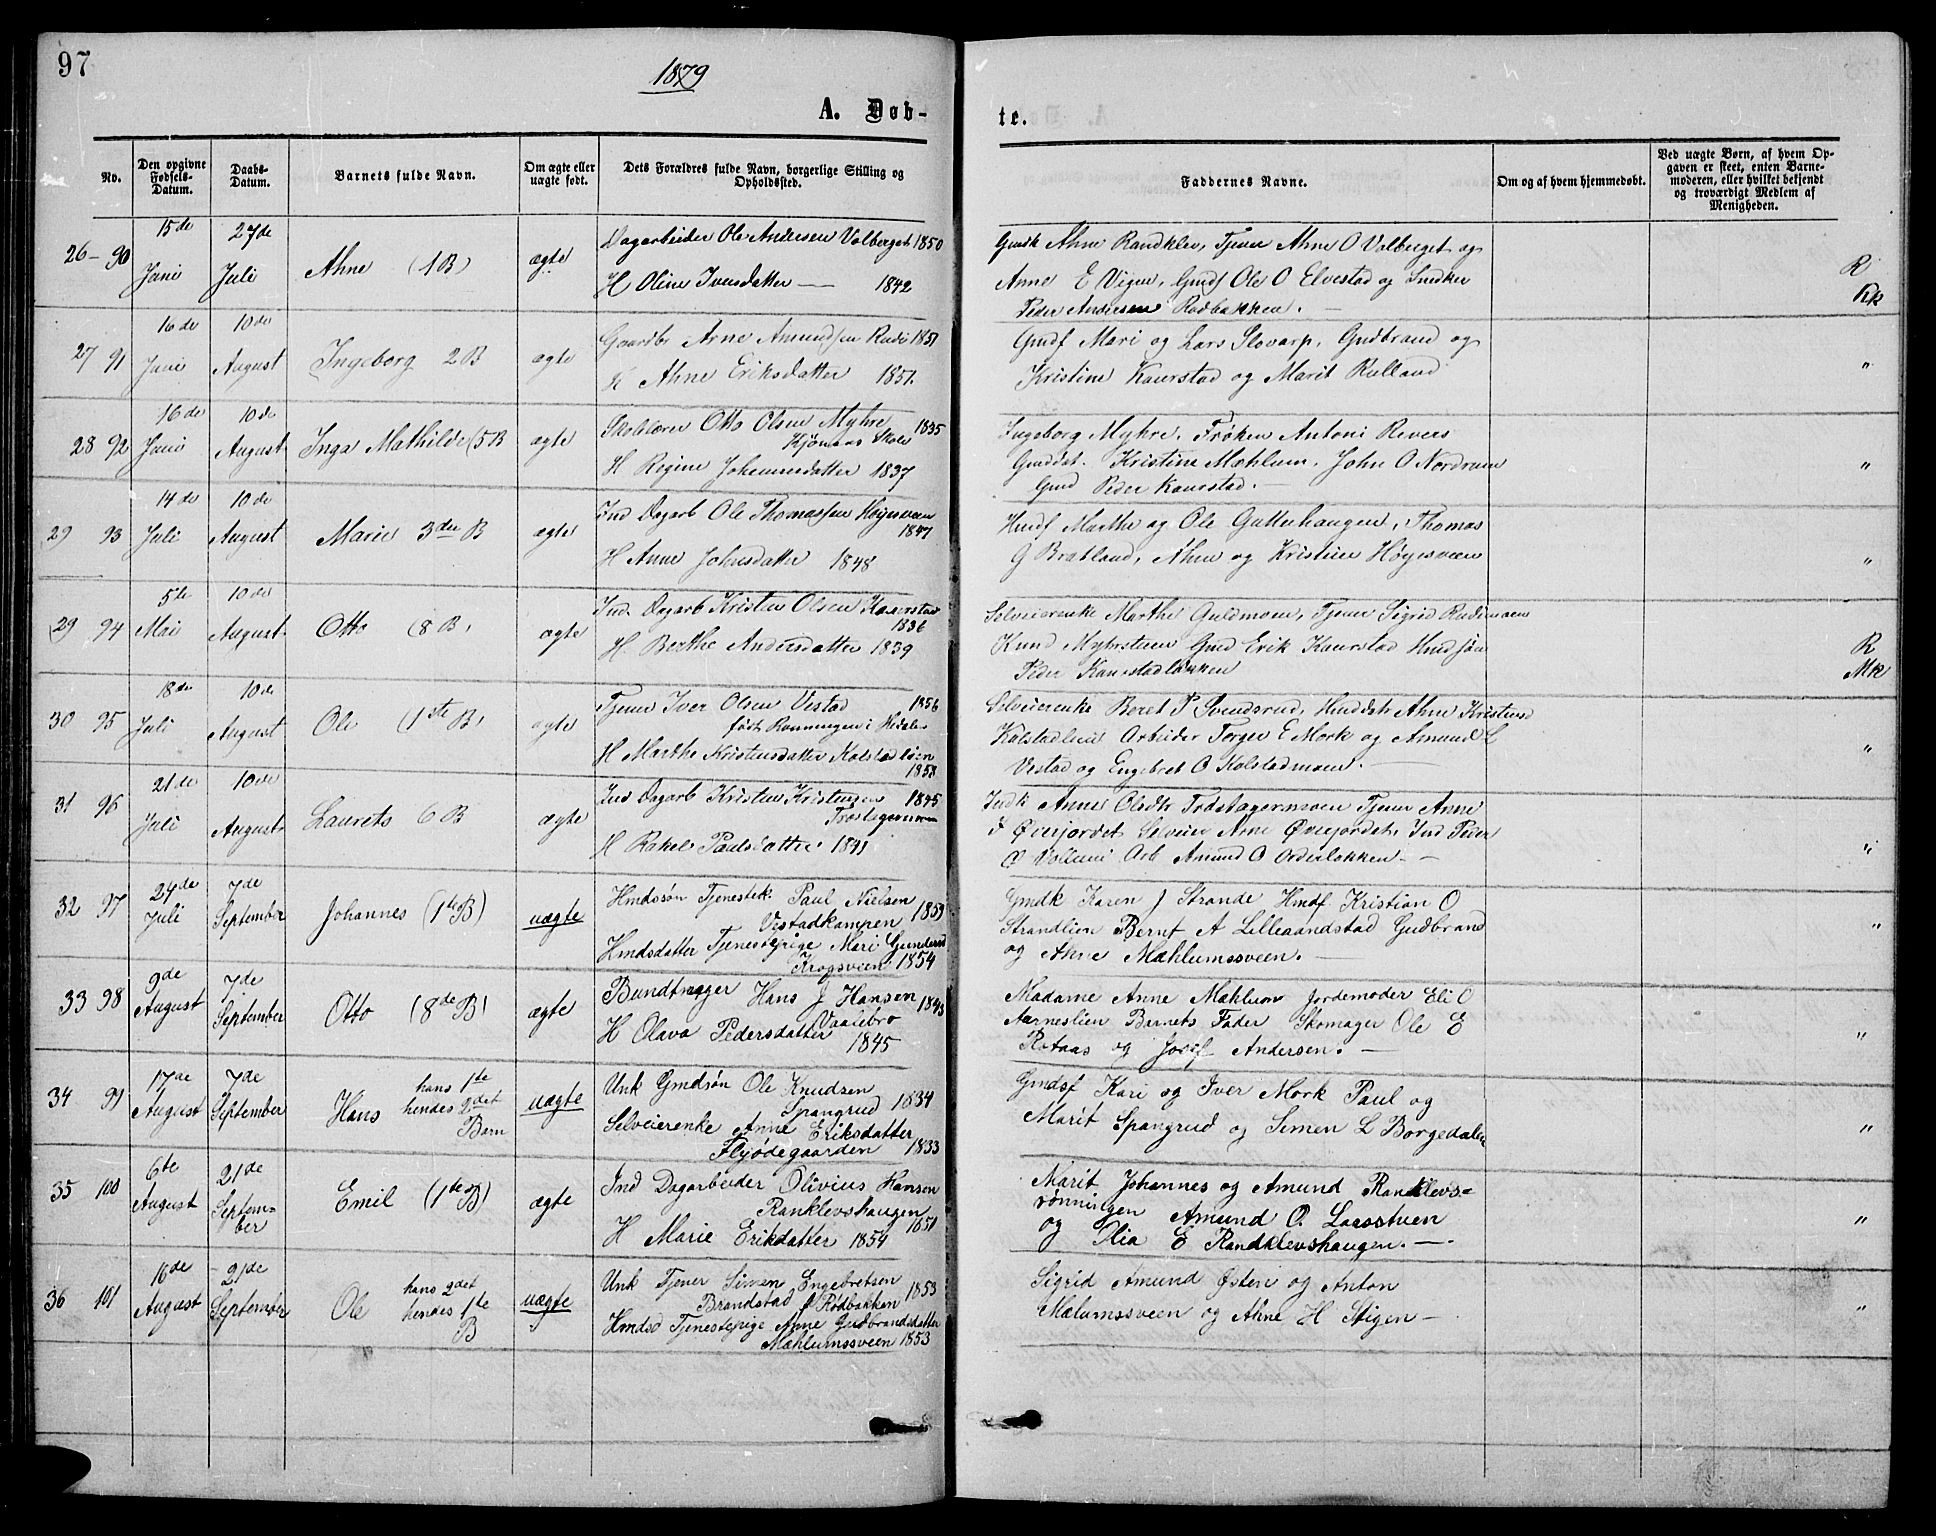 97
1879
A. Døb-
te.
No.
Den opgivne Fødsels-Datum.
Daabs-Datum.
Barnets fulde Navn.
Om ægte eller uægte født.
Dets Forældres fulde Navn, borgerlige Stilling og Opholdssted.
Faddernes Navne.
Om og af hvem hjemmedøbt.
Ved uægte Børn, af hvem Opgaven er skeet, enten Barnemoderen, eller hvilket bekjendt og troværdigt Medlem af Menigheden.
26 - 90 15de Juni 27de Juli Ahne (1 B) ægte
Dagarbeider Ole Andersen Volberget 1850
H Oline Iversdatter — 1842
Gmdk Ahne Randklev, Tjener Ahne O Volberget og
Anne E Vigen, Gmdf Ole O Elvestad og Snedker
Peder Andersen Rødbakken. —
R
Rk
27 91 16de Juni 10de August Ingeborg 2 B ægte
Gaardbr Arne Amundsen Rudi 1851
K Ahne Eriksdatter 1851.
Gmdf Mari og Lars Slovarp, Gudbrand og
Kristine Kaurstad og Marit Rulland
"
28 92 16de Juni 10de August Inga Mathilde (5 B ægte
Skolelærer Otto Olsen Myhre 1835
Kjønaas Skole
H Regine Johannesdatter 1837
Ingeborg Myhre, Frøken Antoni Revers
Gmddt. Kristine Mæhlum, John O Nordrum
Gmd Peder Kaurstad. —
"
29 93 14de Juli 10de August Marie 3die B ægte
Ind Dagarb Ole Thomassen Høgesveen
1847
H Anne Johnsdatter 1848
Hmdf Marthe og Ole Gutterhaugen, Thomas
G Brætland, Ahne og Kristine Høgesveen
"
29 94 5te Mai 10de August Otto (8 B, ægte
Ind. Dagarb Kristen Olsen Kaurstad
1836
H. Berthe Andersdatter 1839
Selveierenke Marthe Guldmoen, Tjener Sigrid Rudimoen
Knud Myhrstuen Gmd Erik Kaurstad Hmdsøn
Peder Kaurstadløkken
R
Mk
30 95 18de Juli 10de August Ole (1ste B, ægte
Tjener Iver Olsen Vestad 1856
født Rønningen i Hedalen
H Marthe Kristensdatter Kolstadlien
1858
Selveierenke Beret P Svendsrud, Hmddtr Ahne Kristensd
Kolstadlien Arbeider Torger E Mork og Amund L
Vestad og Engebret O Kolstadmoen. —
"
31 96 21de Juli 10de August Laurets 6 B ægte
Ind Dagarb Kristen Kristensen 1845
H Rakel Paulsdatter 1841
Indk Anne Olsdtr Trøstagermoen Tjener Anne
J Øverjordet Selveier Arne Øverjordet, Ind Peder
O Vollum Arb Amund O Orderløkken —
"
32 97 24de Juli 7de September Johannes (1te B) uægte
Hmdssøn Tjenestek. Paul Nielsen
Vestadkampen 1859
Hmdsdatter Tjenestepige Mari Gundersd
Krogsveen 1854
Gmdk Karen J Strande Hmdf Kristian O
Strandlien Bernt A Lilleaandstad Gudbrand
og Ahne Mæhlumssveen. —
"
33 98 9de August 7de September Otto (8de B) ægte
Bundtmager Hans J Hansen
Vaalebro 1843
H Olava Pedersdatter 1845
Madame Anne Mæhlum Jordemoder Eli O
Aarneslien Barnets Fader Skomager Ole E
Rotaas og Josef Andersen. —
"
34 99 17de August 7de September Hans hans 1te hendes 2det Barn uægte
Unk Gmdsøn Ole Knudsen
Spangrud 1834
Selveierenke Anne Eriksdatter
Flyødegaarden 1833
Gmdsf Kari og Iver Mork Paul og
Marit Spangrud og Simen L Borgedalen
"
35 100 6te August 21de September Emil (1te B) ægte
Ind Dagarbeider Olivius Hansen
Ranklevshaugen
1851
H Marie Erikdatter 1854
Marit Johannes og Amund Ranklevs-
rønningen Amund O. Laasstuen
og Olia E Randklevshaugen. —
"
36 101 16de August 21de September Ole hans 2det hendes 1te B uægte
Unk Tjener Simen Engebretsen
Brandstad f Rødbakken 1853
Hmdsd Tjenestepige Ahne Gudbrandsdatter
Mæhlumssveen 1853
Sigrid Amund Østen og Anton
Mælumssveen og Ahne H Stigen —
"